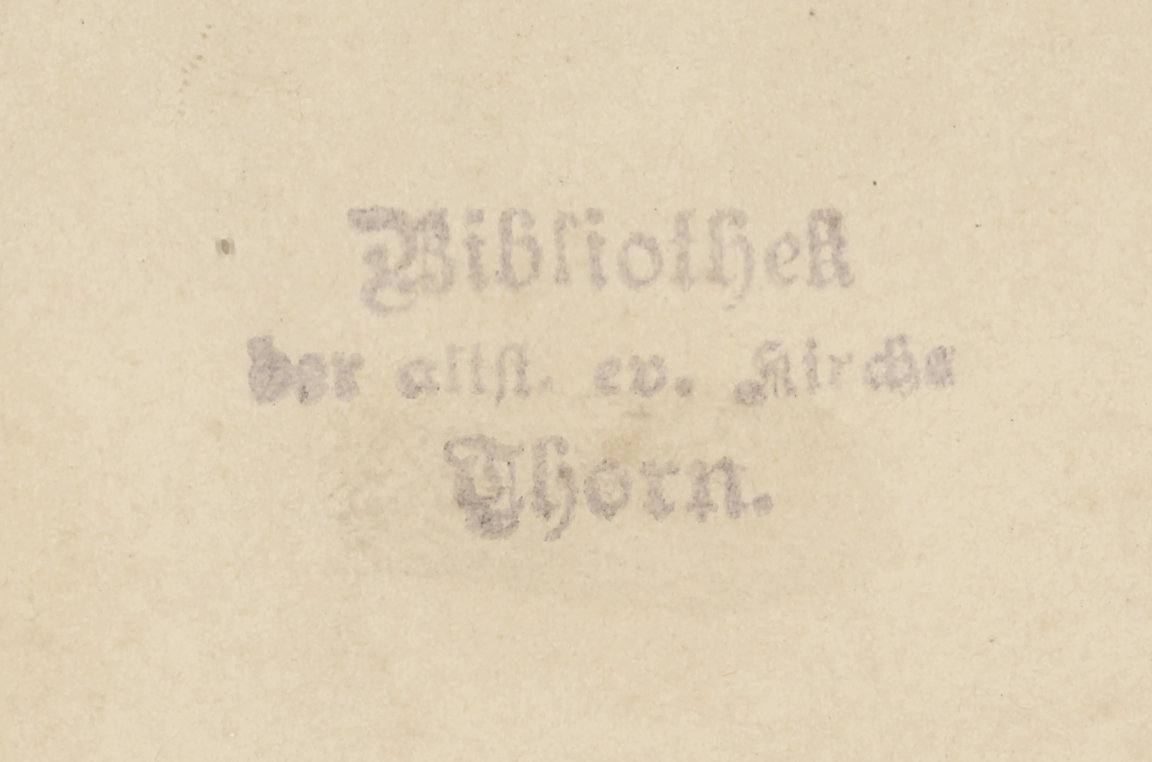 Bibliothek
der altst. ev. Kirche
Thorn.